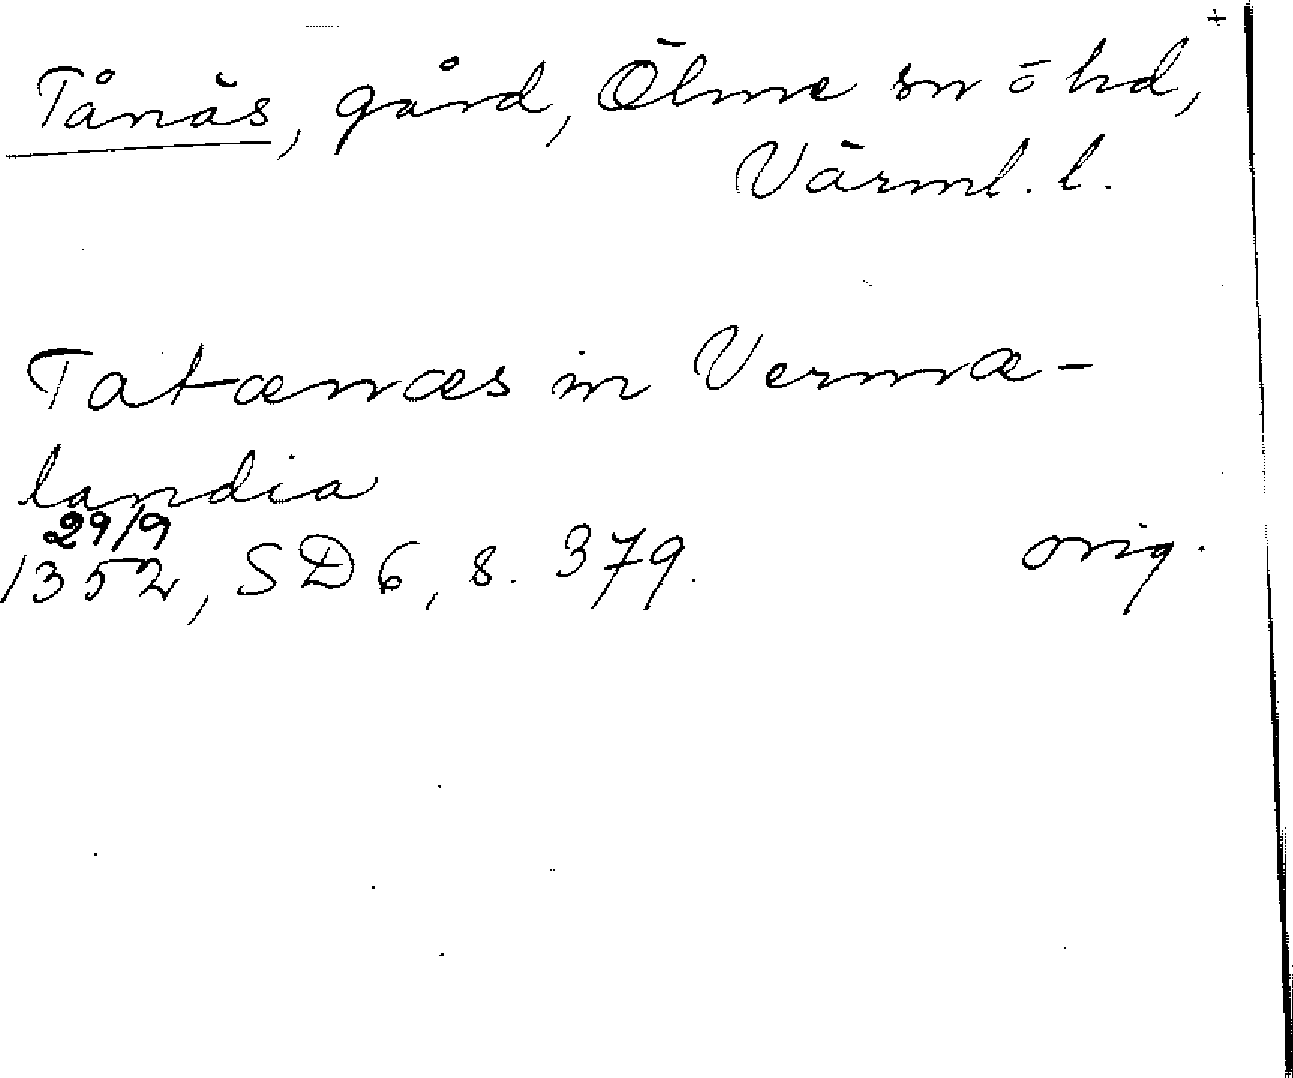 +
Tånäs, gård, Ölme sn o hd,
Värml. l.
Tatænæs in Vermæ-
landia
29/9
1352, SD 6, s. 379. orig.